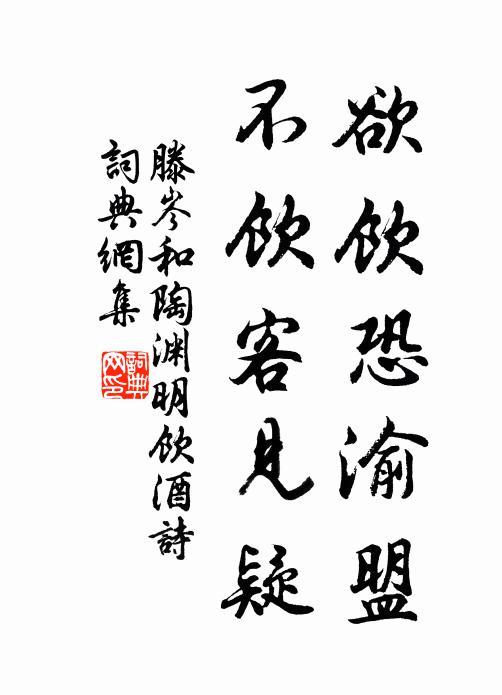 欲飲恐渝盟
不飲客見疑
滕岑和陶渊明飲酒詩
詞典網集
詞典
网印